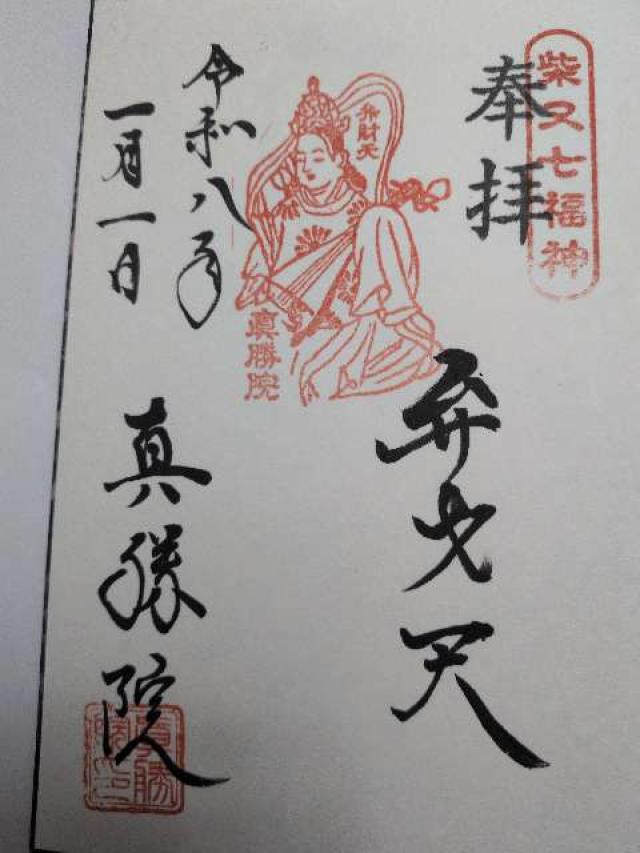 柴又七福神
奉拝
弁財天
眞勝院
弁才天
令和八年
一月一日
真勝院